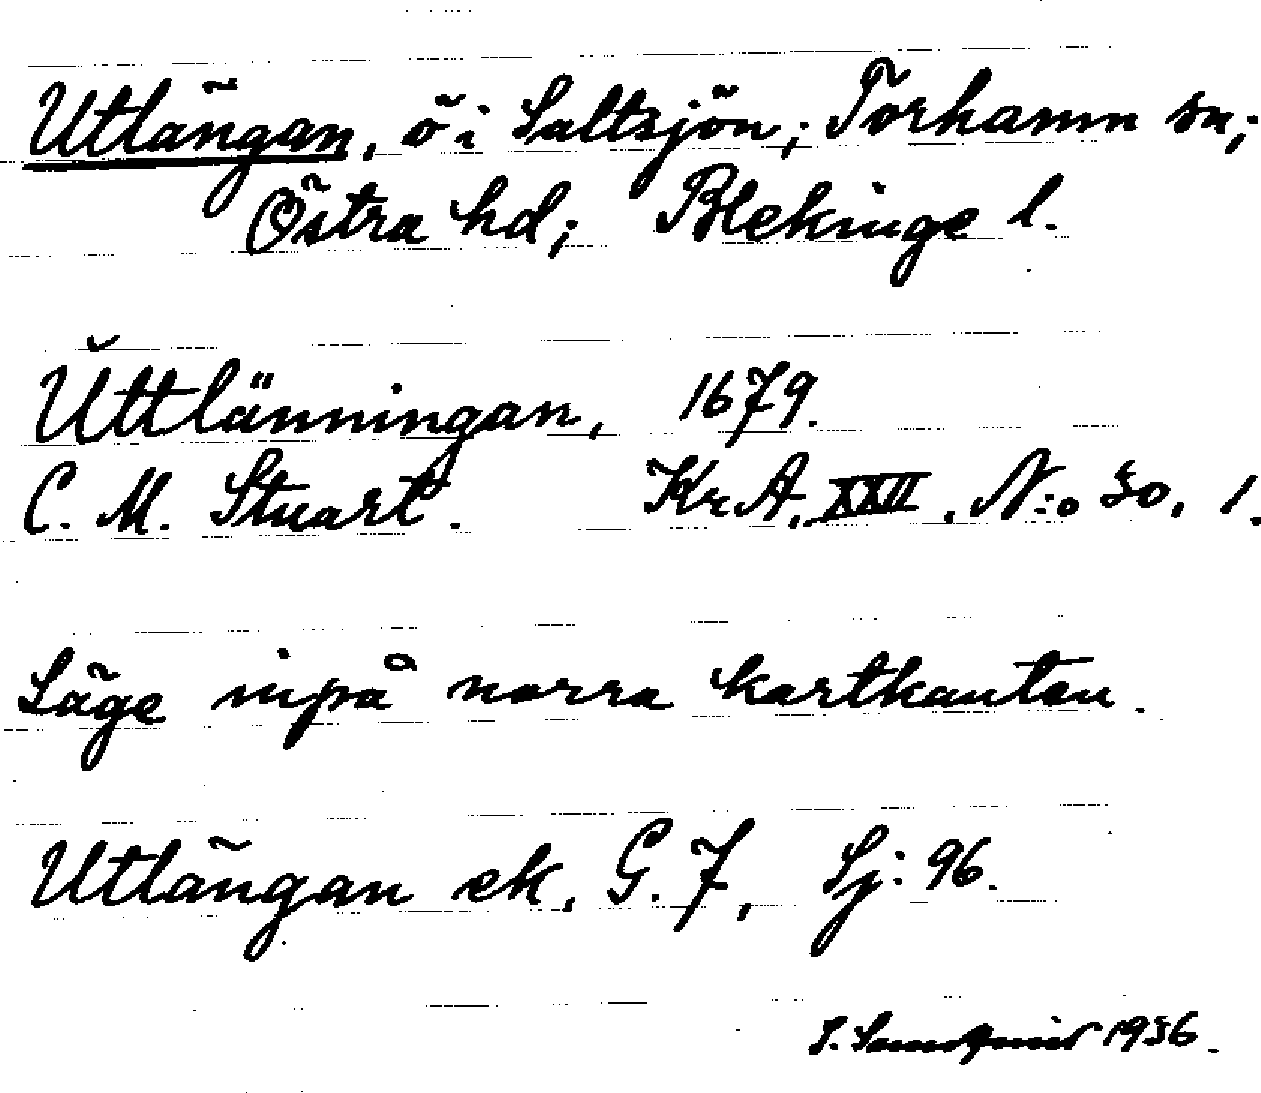 Utlängan, ö i Saltsjön; Torhamn sn;
Östra hd; Blekinge l.
Uttlänningan, 1679.
C. M. Stuart. Kr. A. XXII. N:o 30, 1.
Läge inpå norra kartkanten.
Utlängan ek. G. 7, Sj: 96.
1936.